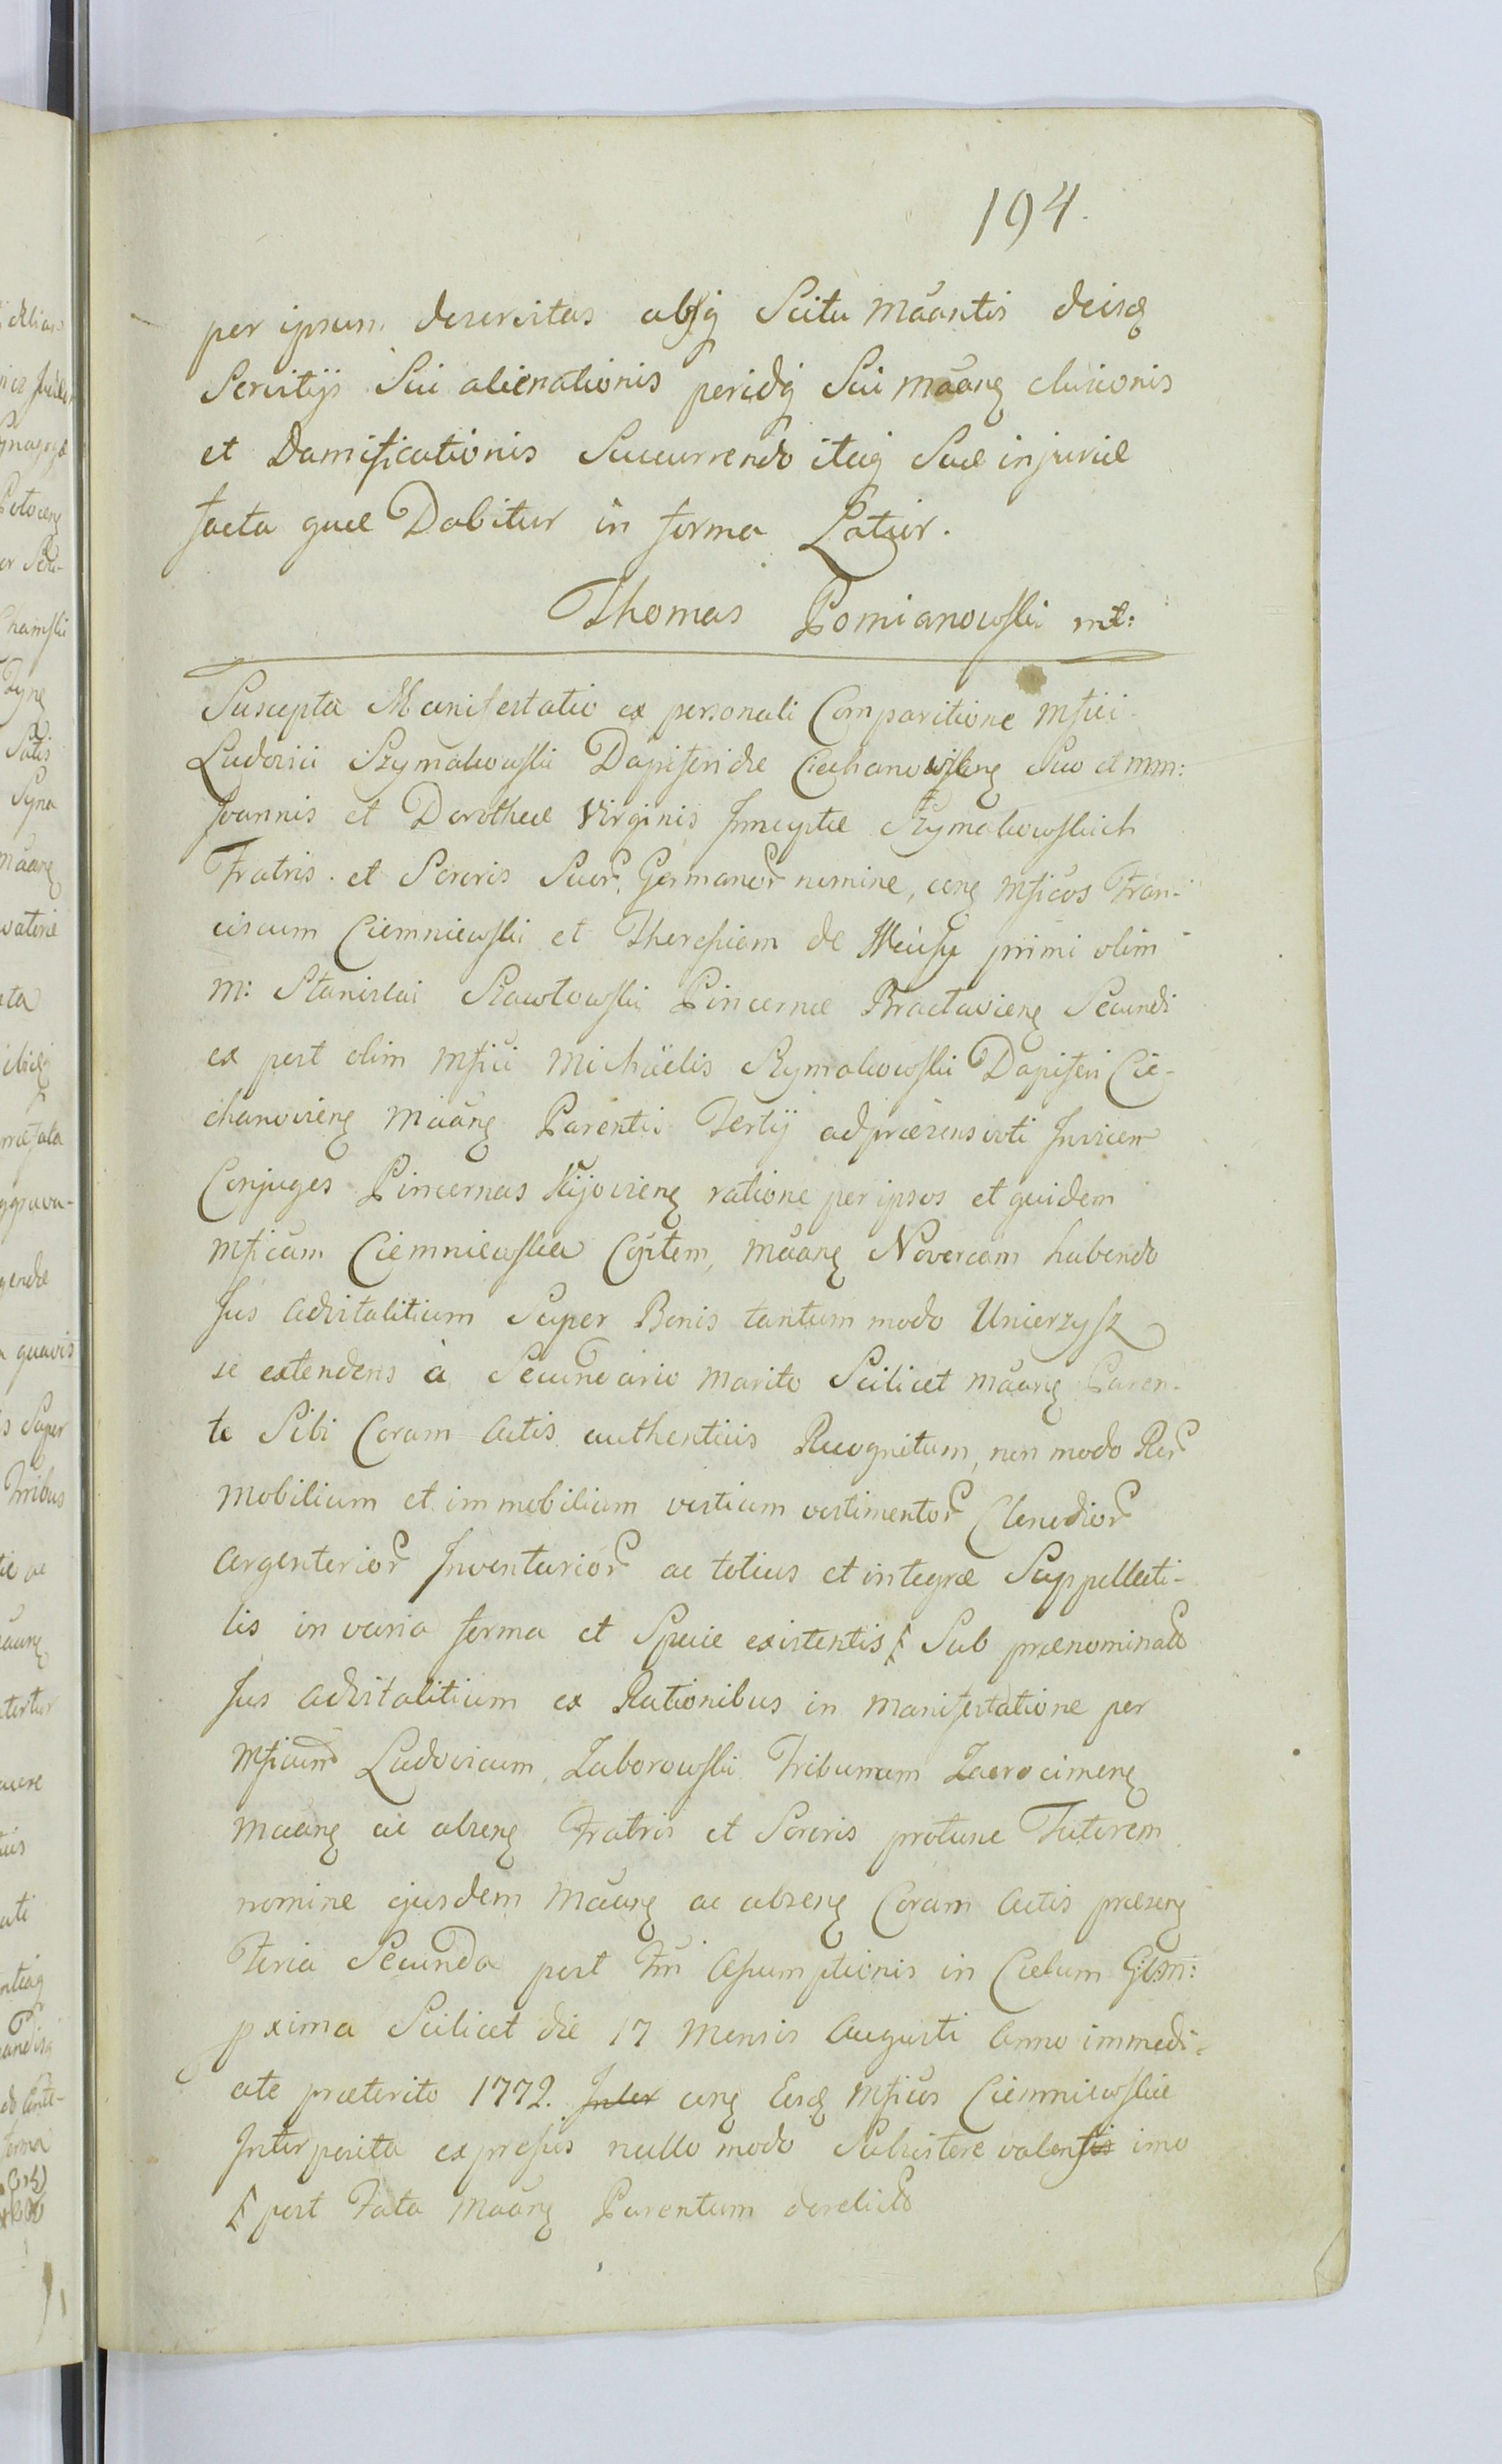 194.
per ipsum deservitas absq Scitu Maantis deisq
Servitijs Sui alienationis peridq Sui Maanę elusionis
et Damificationis Succurrendo itaq Suae injuriae
facta quae Dabitur in forma Latior.
Thomas Pomianowski mt:
Suscepta Manifestatio ex personali Comparitione Mfici
Ludovici Szymakowski Dapiferidae Ciechanowskenę Suo et mm:
Joannis et Dorotheae Virginis Innuptae Szymakowskich
Fratris et Sororis Suor Germanor nomine, conę Mficos Fran-
ciscum Ciemniewski et Theresiam de primi olim
M: Stanislai Szawłowski Pincernae Bractavienę Secundi
ex post olim Mfici Michaelis Szymakowski Dapiferi Cie-
chanovienę Maanę Parentis Tertij adpraesens viti Invicem
Conjuges Pincernas Kijovienę ratione per ipsos et quidem
Mficam Ciemniewska Cońtem, Maanę Novercam habendo
Jus advitalitium Super Bonis tantum modo Unierzysz
se extendens à Secundario Marito Scilicet Maanę Paren-
te Sibi Coram Actis authenticis Recognitum, non modo Rer
Mobilium et immobilium vestium vestimentor Clenodior
Argenterior Inventarior ac totius et integrae Suppellecti-
lis in varia forma et Specie existentis ⁁ Sub praenominato
Jus advitalitium ex Rationibus in Manifestatione per
Mficum Ludovicum Zaborowski Tribunum Zacrocimenę
Maanę ac absenę Fratris et Sororis protunc Tutorem
nomine ejusdem Maanę ac absenę Coram Actis praesenę
Feria Secunda post Ftri Assumptionis in Caelum Glsn:
pxima Scilicet die 17 Mensis Augusti Anno immedi-
ate praeterito 1772. Inter conę Eosq Mficos Ciemniewskie
Interposita expressis nullo modo Subsistere valens imo
⁁ post Fata Maanę Parentum derelicto